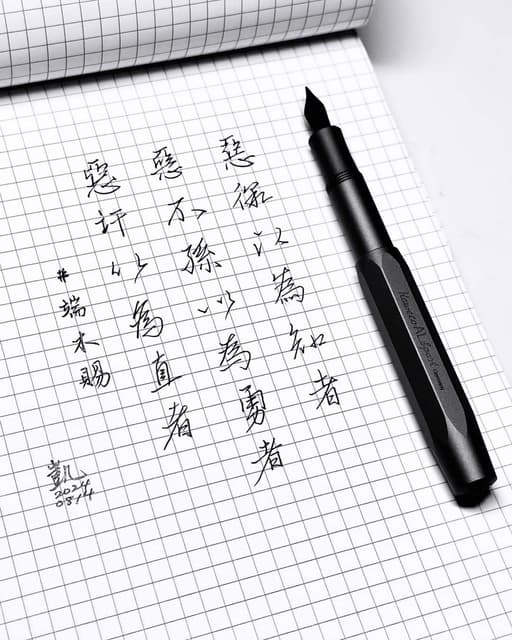 惡徼以為知者
惡不孫以為勇者
惡訐以為直者
#端木賜
凱
2024
0814
Kaweco AL Sport